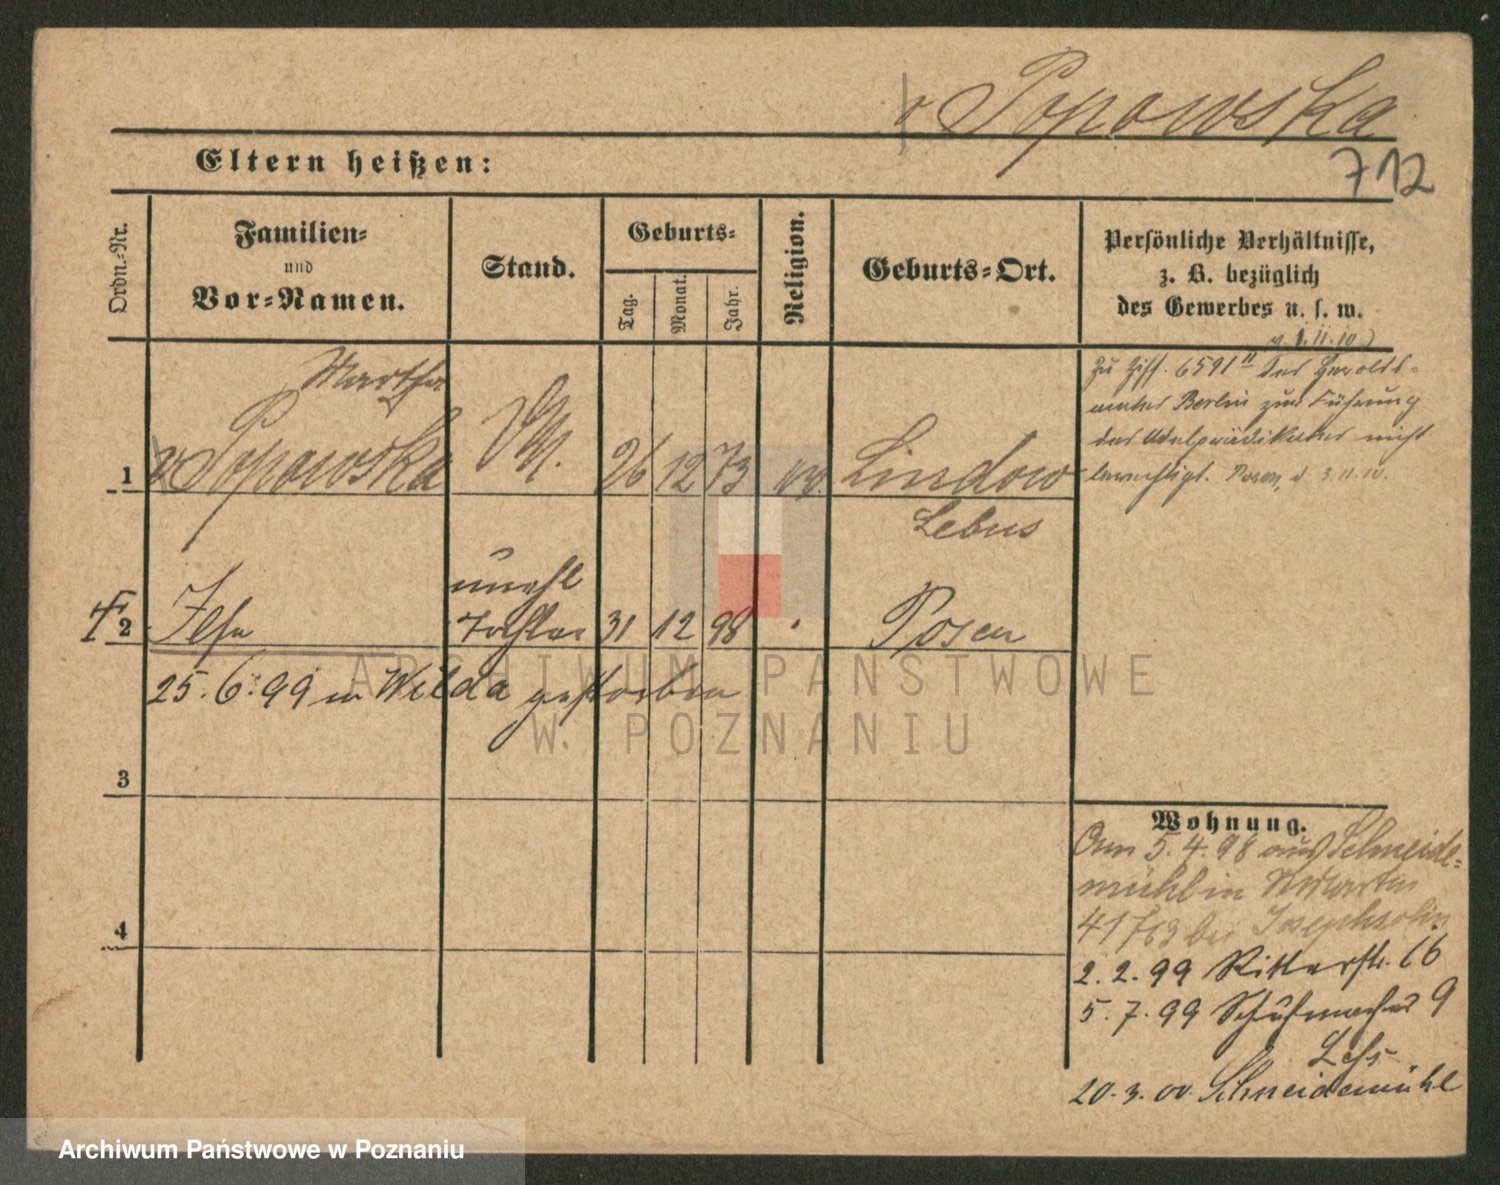 v Popowska
Eltern heißen:
712
Ordn.-Nr.
Familien-
und
Vor-Namen.
Stand.
Geburts-
Tag.
Monat.
Jahr.
Religion.
Geburts-Ort.
Persönliche Verhältnisse,
z. B. bezüglich
des Gewerbes u. s. w.
Martha
1 v Popowska 26 12 73 Lindow
Lebus
Zu Ziff. 6591 des Herolds-
amtes Berlin zur Führung
des Adelsprädikates nicht
berechtigt. Posen, d 3.11.10.
unehl
2 Ilse Tochter 31 12 98 Posen
25.6.99 in Wilda gestorben
3
4
Wohnung.
5.4.98 aus Schneide-
mühl in
bei
2.2.99 Ritterstr. 16
5.7.99 Schuhmacher 9
20.3.00 Schneidemühl
ARCHIWUM PAŃSTWOWE
W POZNANIU
Archiwum Państwowe w Poznaniu